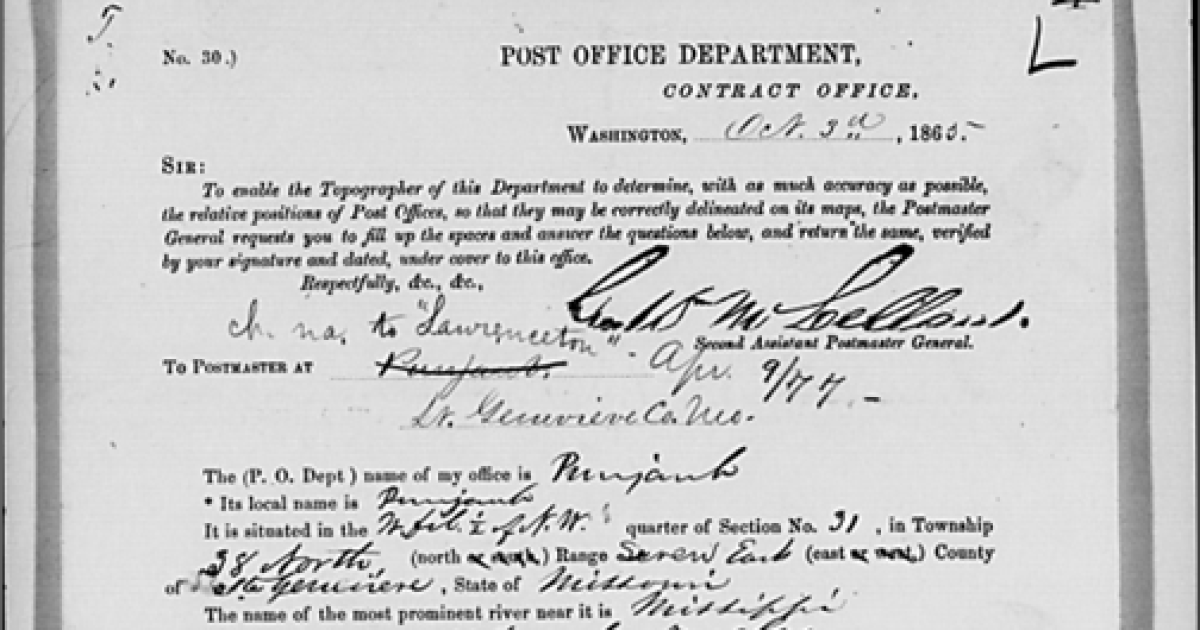 No. 30.)
POST OFFICE DEPARTMENT,
CONTRACT OFFICE,
WASHINGTON, Oct. 3rd, 1865.
SIR:
To enable the Topographer of this Department to determine, with as much accuracy as possible,
the relative positions of Post Offices, so that they may be correctly delineated on its maps, the Postmaster
General requests you to fill up the spaces and answer the questions below, and return the same, verified
by your signature and dated, under cover to this office.
Respectfully, &c., &c.,
Geo W McLellan.
ch. na. to "Lawrenceton" - Apr. 9/77. -
Second Assistant Postmaster General.
TO POSTMASTER AT Punjaub.
St. Genevieve Co. Mo.
The (P. O. Dept) name of my office is Punjaub
* Its local name is Punjaub
It is situated in the of N.W. quarter of Section No. 31, in Township
38 North, (north or south,) Range Seven East (east or west,) County
of Ste Genevieve, State of Missouri
The name of the most prominent river near it is Missippi